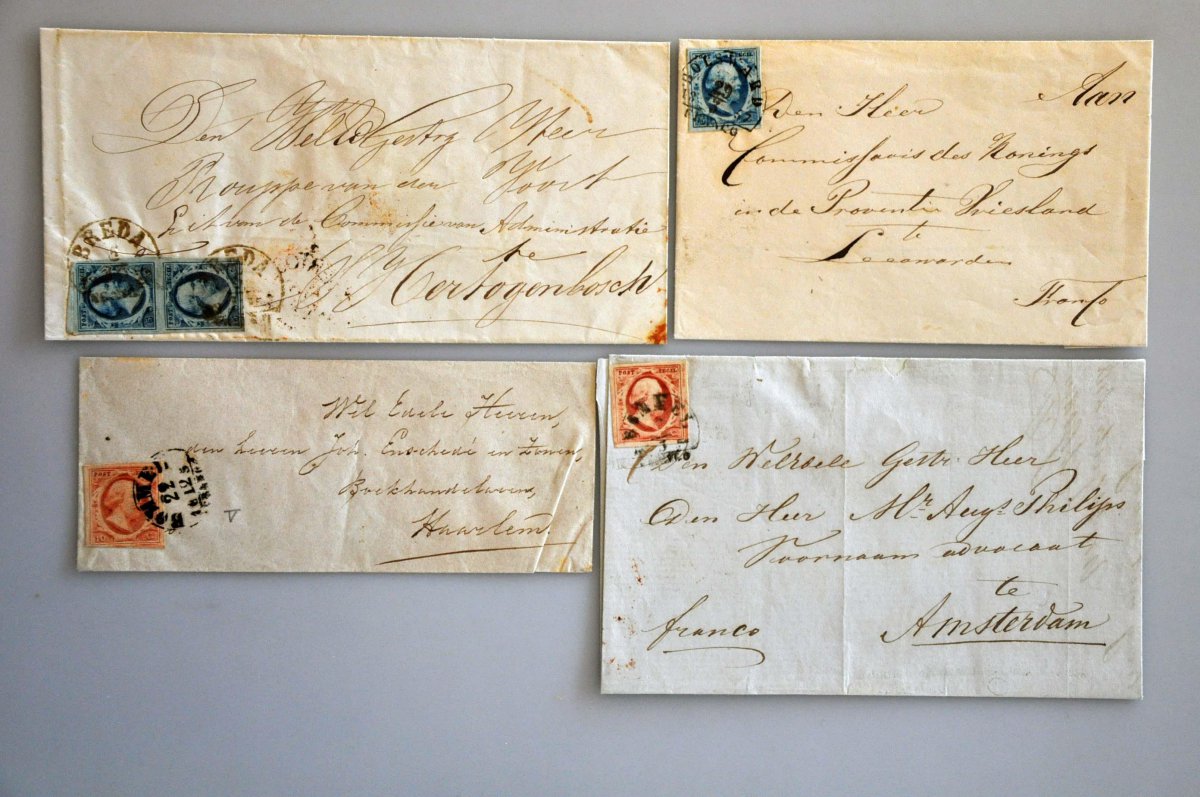 Den WelEdGestrg Heer
Rouppe van der Voort
Lid van de Commissie van Administratie
te
's Hertogenbosch
BREDA
BREDA
Aan
Den Heer
Commissaris des Konings
in de Proventie Vriesland
te
Leeuwarden
Franco
Wel Edele Heeren,
den heeren Joh. Enschedé en Zonen,
Boekhandelaren,
Haarlem
BOMMEL
22
12
POST ZEGEL
Den WelEdele Gestr. Heer
Den Heer Mr. Augs. Philips
Voornaam advocaat
te
franco
Amsterdam